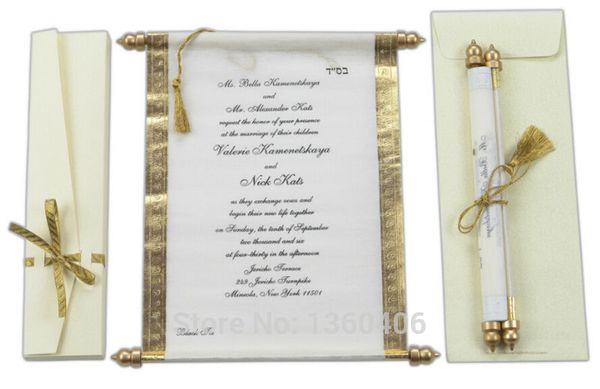 בס"ד
Ms. Bella Kamenetskaya
and
Mr. Alexander Kats
request the honor of your presence
at the marriage of their children
Valerie Kamenetskaya
and
Nick Kats
as they exchange vows and
begin their new life together
on Sunday, the tenth of September
two thousand and six
at four-thirty in the afternoon
Jericho Terrace
249 Jericho Turnpike
Mineola, New York 11501
Black Tie
Store No: 1360406